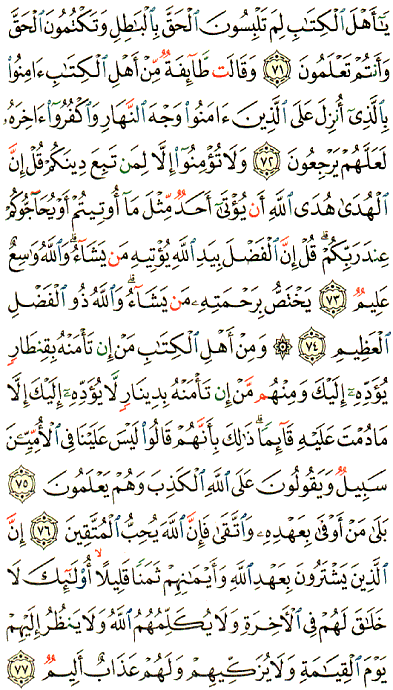 يَـٰٓأَهْلَ ٱلْكِتَـٰبِ لِمَ تَلْبِسُونَ ٱلْحَقَّ بِٱلْبَـٰطِلِ وَتَكْتُمُونَ ٱلْحَقَّ
وَأَنتُمْ تَعْلَمُونَ ﴿٧١﴾ وَقَالَت طَّآئِفَةٌ مِّنْ أَهْلِ ٱلْكِتَـٰبِ ءَامِنُوا۟
بِٱلَّذِىٓ أُنزِلَ عَلَى ٱلَّذِينَ ءَامَنُوا۟ وَجْهَ ٱلنَّهَارِ وَٱكْفُرُوٓا۟ ءَاخِرَهُۥ
لَعَلَّهُمْ يَرْجِعُونَ ﴿٧٢﴾ وَلَا تُؤْمِنُوٓا۟ إِلَّا لِمَن تَبِعَ دِينَكُمْ قُلْ إِنَّ
ٱلْهُدَىٰ هُدَى ٱللَّهِ أَن يُؤْتَىٰٓ أَحَدٌ مِّثْلَ مَآ أُوتِيتُمْ أَوْ يُحَآجُّوكُمْ
عِندَ رَبِّكُمْ ۗ قُلْ إِنَّ ٱلْفَضْلَ بِيَدِ ٱللَّهِ يُؤْتِيهِ مَن يَشَآءُ ۗ وَٱللَّهُ وَٰسِعٌ
عَلِيمٌ ﴿٧٣﴾ يَخْتَصُّ بِرَحْمَتِهِۦ مَن يَشَآءُ ۗ وَٱللَّهُ ذُو ٱلْفَضْلِ
ٱلْعَظِيمِ ﴿٧٤﴾ ۞ وَمِنْ أَهْلِ ٱلْكِتَـٰبِ مَنْ إِن تَأْمَنْهُ بِقِنطَارٍ
يُؤَدِّهِۦٓ إِلَيْكَ وَمِنْهُم مَّنْ إِن تَأْمَنْهُ بِدِينَارٍ لَّا يُؤَدِّهِۦٓ إِلَيْكَ إِلَّا
مَا دُمْتَ عَلَيْهِ قَآئِمًا ۗ ذَٰلِكَ بِأَنَّهُمْ قَالُوا۟ لَيْسَ عَلَيْنَا فِى ٱلْأُمِّيِّـۧنَ
سَبِيلٌ وَيَقُولُونَ عَلَى ٱللَّهِ ٱلْكَذِبَ وَهُمْ يَعْلَمُونَ ﴿٧٥﴾
بَلَىٰ مَنْ أَوْفَىٰ بِعَهْدِهِۦ وَٱتَّقَىٰ فَإِنَّ ٱللَّهَ يُحِبُّ ٱلْمُتَّقِينَ ﴿٧٦﴾ إِنَّ
ٱلَّذِينَ يَشْتَرُونَ بِعَهْدِ ٱللَّهِ وَأَيْمَـٰنِهِمْ ثَمَنًا قَلِيلًا أُو۟لَـٰٓئِكَ لَا
خَلَـٰقَ لَهُمْ فِى ٱلْـَٔاخِرَةِ وَلَا يُكَلِّمُهُمُ ٱللَّهُ وَلَا يَنظُرُ إِلَيْهِمْ
يَوْمَ ٱلْقِيَـٰمَةِ وَلَا يُزَكِّيهِمْ وَلَهُمْ عَذَابٌ أَلِيمٌ ﴿٧٧﴾